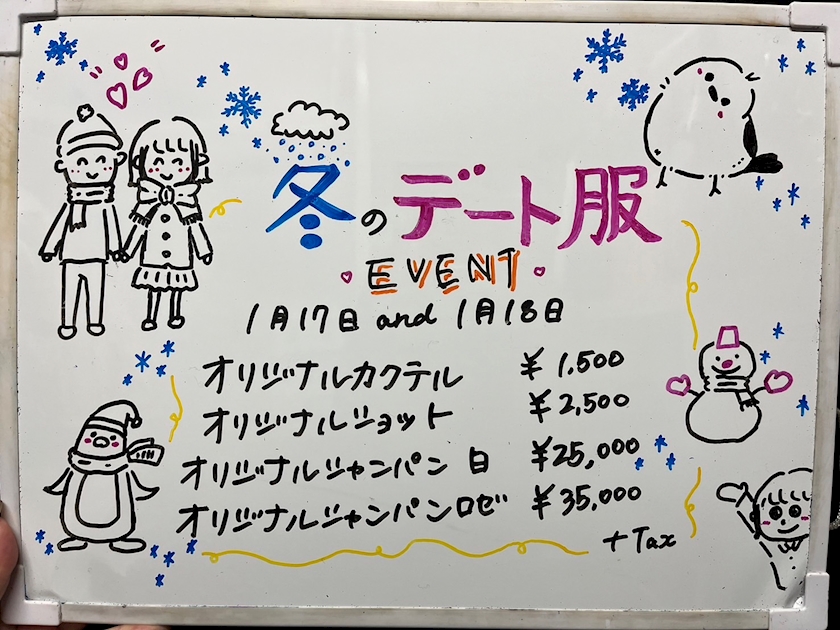 冬のデート服
EVENT
1月17日 and 1月18日
オリジナルカクテル ¥1,500
オリジナルショット ¥2,500
オリジナルシャンパン 白 ¥25,000
オリジナルシャンパンロゼ ¥35,000
+Tax